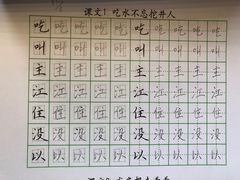 课文1 吃水不忘挖井人
吃吃吃吃吃吃吃吃吃吃
叫叫叫叫叫叫叫叫叫叫
主主主主主主主主主主
江江江江江江江江江江
住住住住住住住住住住
没没没没没没没没没没
以以以以以以以以以以